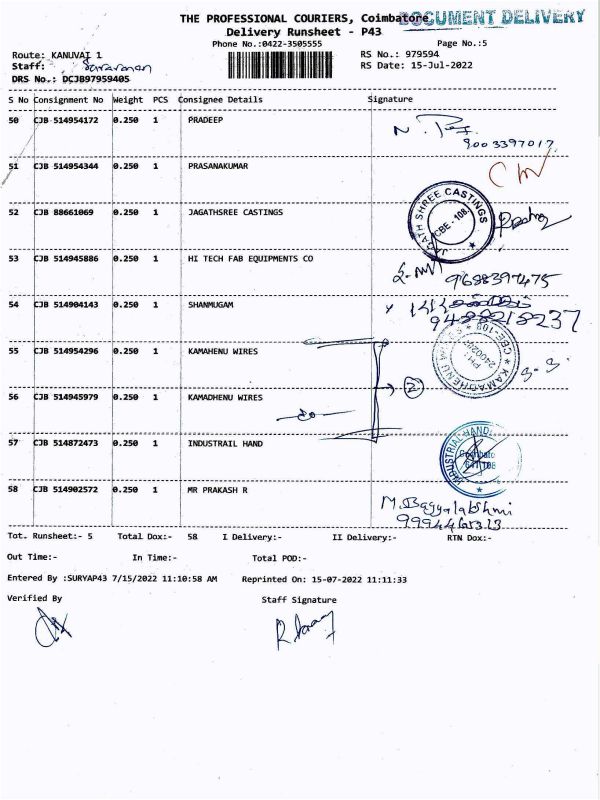 THE PROFESSIONAL COURIERS, Coimbatore
DOCUMENT DELIVERY
Delivery Runsheet - P43
Phone No.:0422-3505555
Page No.:5
Route: KANUVAI 1
RS No.: 979594
Staff: Saravanan
RS Date: 15-Jul-2022
DRS No.: DCJB97959405
S No Consignment No Weight PCS Consignee Details Signature
50 CJB 514954172 0.250 1 PRADEEP
9003397017
51 CJB 514954344 0.250 1 PRASANAKUMAR
52 CJB 88661069 0.250 1 JAGATHSREE CASTINGS
JAGATH SHREE CASTINGS
CBE - 108
53 CJB 514945886 0.250 1 HI TECH FAB EQUIPMENTS CO
9688397475
54 CJB 514904143 0.250 1 SHANMUGAM
9488218237
55 CJB 514954296 0.250 1 KAMAHENU WIRES
KAMADHENU
CBE-108
56 CJB 514945979 0.250 1 KAMADHENU WIRES
2
57 CJB 514872473 0.250 1 INDUSTRAIL HAND
INDUSTRIAL HAND
641 108
58 CJB 514902572 0.250 1 MR PRAKASH R
M. Bagyalakshmi
Tot. Runsheet:- 5 Total Dox:- 58 I Delivery:- II Delivery:- RTN Dox:-
Out Time:- In Time:- Total POD:-
Entered By :SURYAP43 7/15/2022 11:10:58 AM Reprinted On: 15-07-2022 11:11:33
Verified By Staff Signature